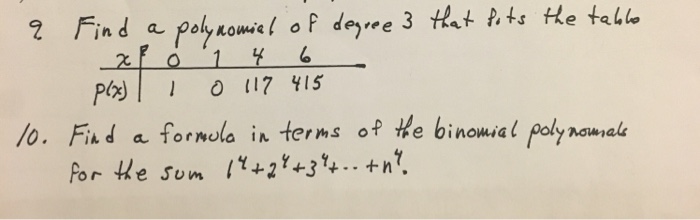 9 Find a polynomial of degree 3 that fits the table
x 0 1 4 6
p(x) 1 0 117 415
10. Find a formula in terms of the binomial polynomials
for the sum 1⁴+2⁴+3⁴+..+n⁴.